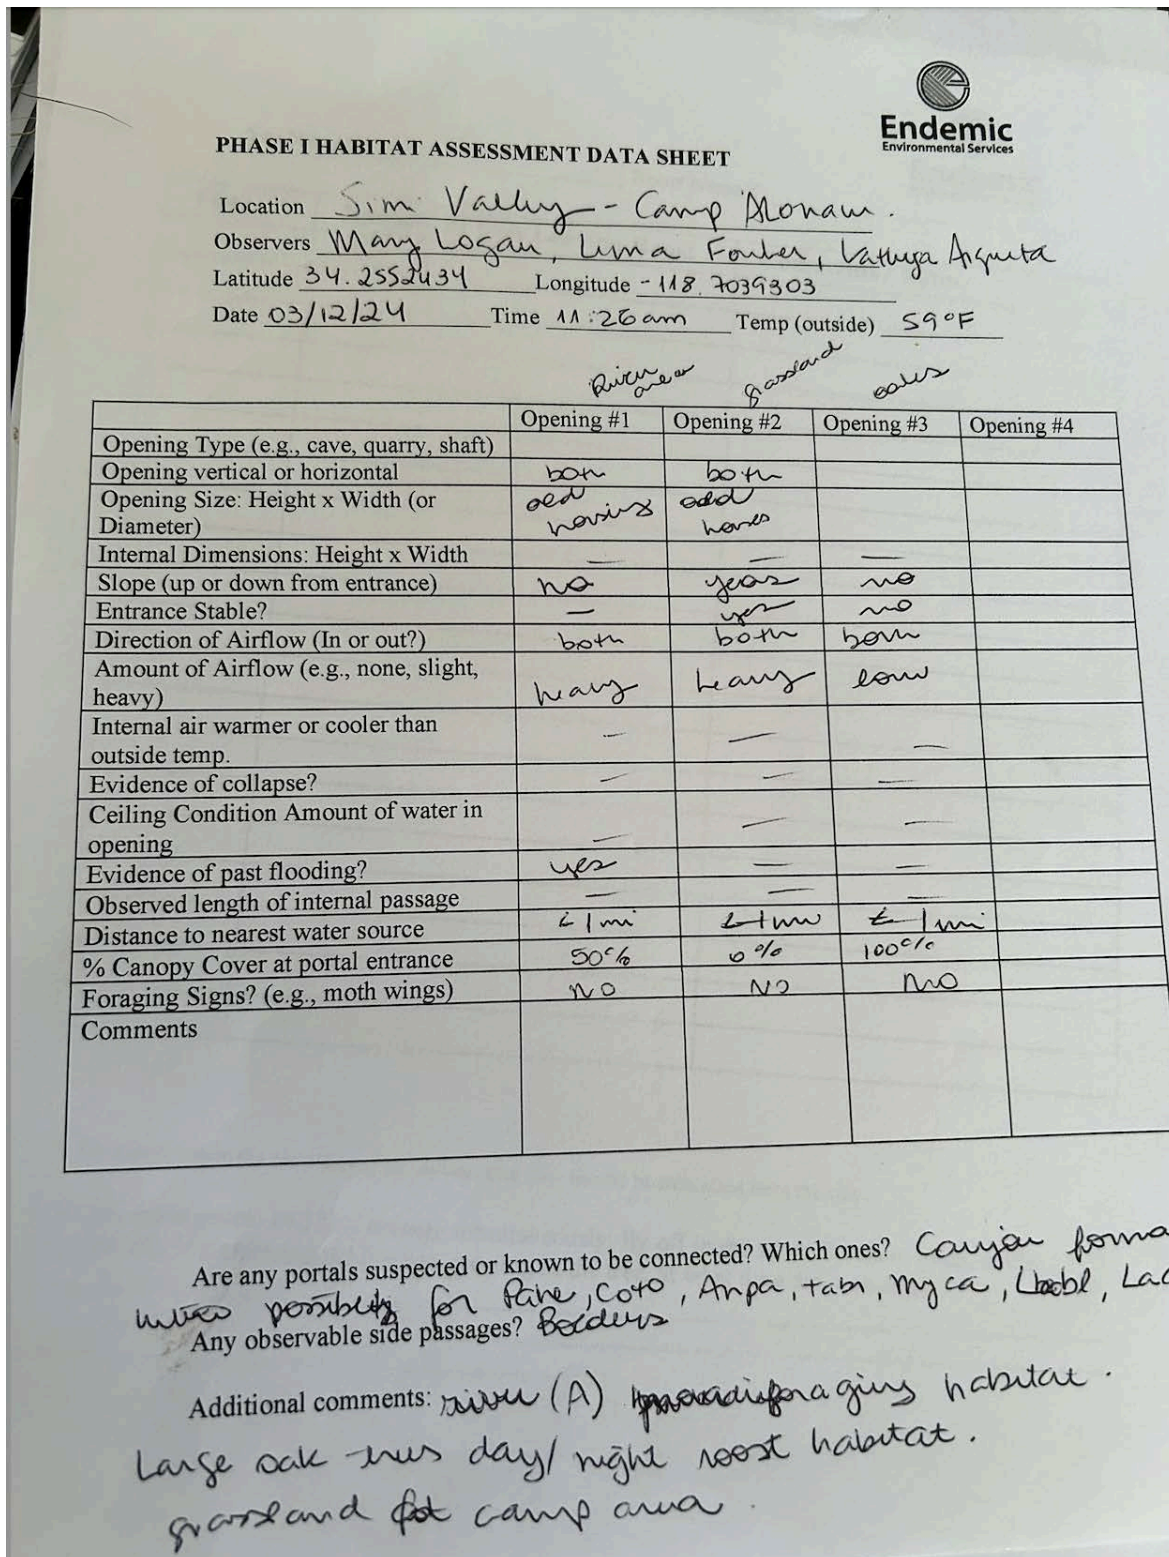 Endemic
Environmental Services
PHASE I HABITAT ASSESSMENT DATA SHEET
Location Simi Valley - Camp Alonaim.
Observers Mary Logan, Luna
Latitude 34.2552434 Longitude -118.7039303
Date 03/12/24 Time 11:26am Temp (outside) 59°F
River area grassland oaks
Opening #1 Opening #2 Opening #3 Opening #4
Opening Type (e.g., cave, quarry, shaft)
Opening vertical or horizontal both both
Opening Size: Height x Width (or
Diameter)
Internal Dimensions: Height x Width — — —
Slope (up or down from entrance) no no
Entrance Stable? — yes no
Direction of Airflow (In or out?) both both both
Amount of Airflow (e.g., none, slight,
heavy) heavy heavy low
Internal air warmer or cooler than
outside temp. — — —
Evidence of collapse? — — —
Ceiling Condition Amount of water in
opening — — —
Evidence of past flooding? yes — —
Observed length of internal passage — — —
Distance to nearest water source <1mi <1mi <1mi
% Canopy Cover at portal entrance 50% 0% 100%
Foraging Signs? (e.g., moth wings) NO NO NO
Comments
Are any portals suspected or known to be connected? Which ones? Canyon forma
for Pahe, Coto, Anpa, tabr, myca, Labl, Lac
Any observable side passages?
Additional comments: river (A) foraging habitat.
Large oak trees day/night roost habitat.
grassland camp area.